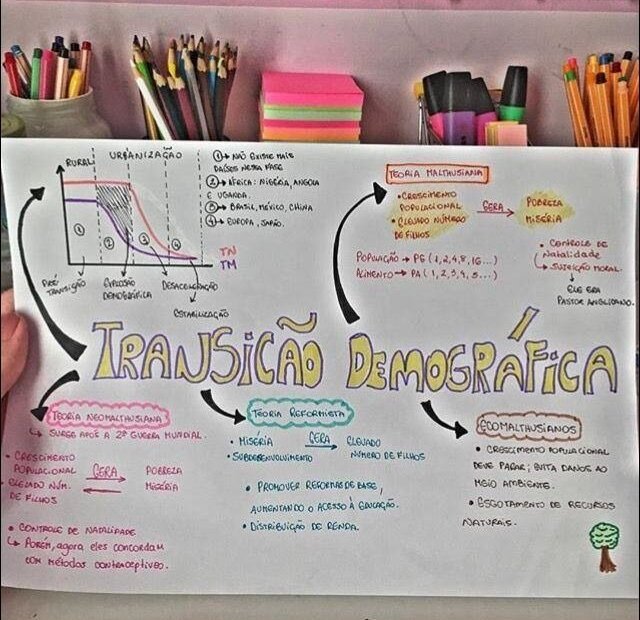 RURAL URBANIZAÇÃO
1 2 3 4
TN
TM
PRÉ TRANSIÇÃO
EXPLOSÃO DEMOGRÁFICA
DESACELERAÇÃO
ESTABILIZAÇÃO
① → NÃO EXISTE MAIS
PAÍSES NESSA FASE
② → ÁFRICA: NIGÉRIA, ANGOLA
E UGANDA.
③ → BRASIL, MÉXICO, CHINA
④ → EUROPA, JAPÃO.
TEORIA MALTHUSIANA
• CRESCIMENTO
POPULACIONAL
• ELEVADO NÚMERO
DE FILHOS
GERA →
POBREZA
MISÉRIA
POPULAÇÃO → PG (1, 2, 4, 8, 16...)
ALIMENTO → PA (1, 2, 3, 4, 5...)
• CONTROLE DE
NATALIDADE
↳ SUJEIÇÃO MORAL.
↓
ELE ERA
PASTOR ANGLICANO.
TRANSIÇÃO DEMOGRÁFICA
TEORIA NEOMALTHUSIANA
↳ SURGE APÓS A 2ª GUERRA MUNDIAL.
• CRESCIMENTO
POPULACIONAL
• ELEVADO NÚM.
DE FILHOS
GERA
POBREZA
MISÉRIA
• CONTROLE DE NATALIDADE
↳ PORÉM, AGORA ELES CONCORDAM
COM MÉTODOS CONTRACEPTIVOS.
TEORIA REFORMISTA
• MISÉRIA
• SUBDESENVOLVIMENTO
GERA →
ELEVADO
NÚMERO DE FILHOS
• PROMOVER REFORMAS DE BASE,
AUMENTANDO O ACESSO À EDUCAÇÃO.
• DISTRIBUIÇÃO DE RENDA.
ECOMALTHUSIANOS
• CRESCIMENTO POPULACIONAL
DEVE PARAR; EVITA DANOS AO
MEIO AMBIENTE.
• ESGOTAMENTO DE RECURSOS
NATURAIS.